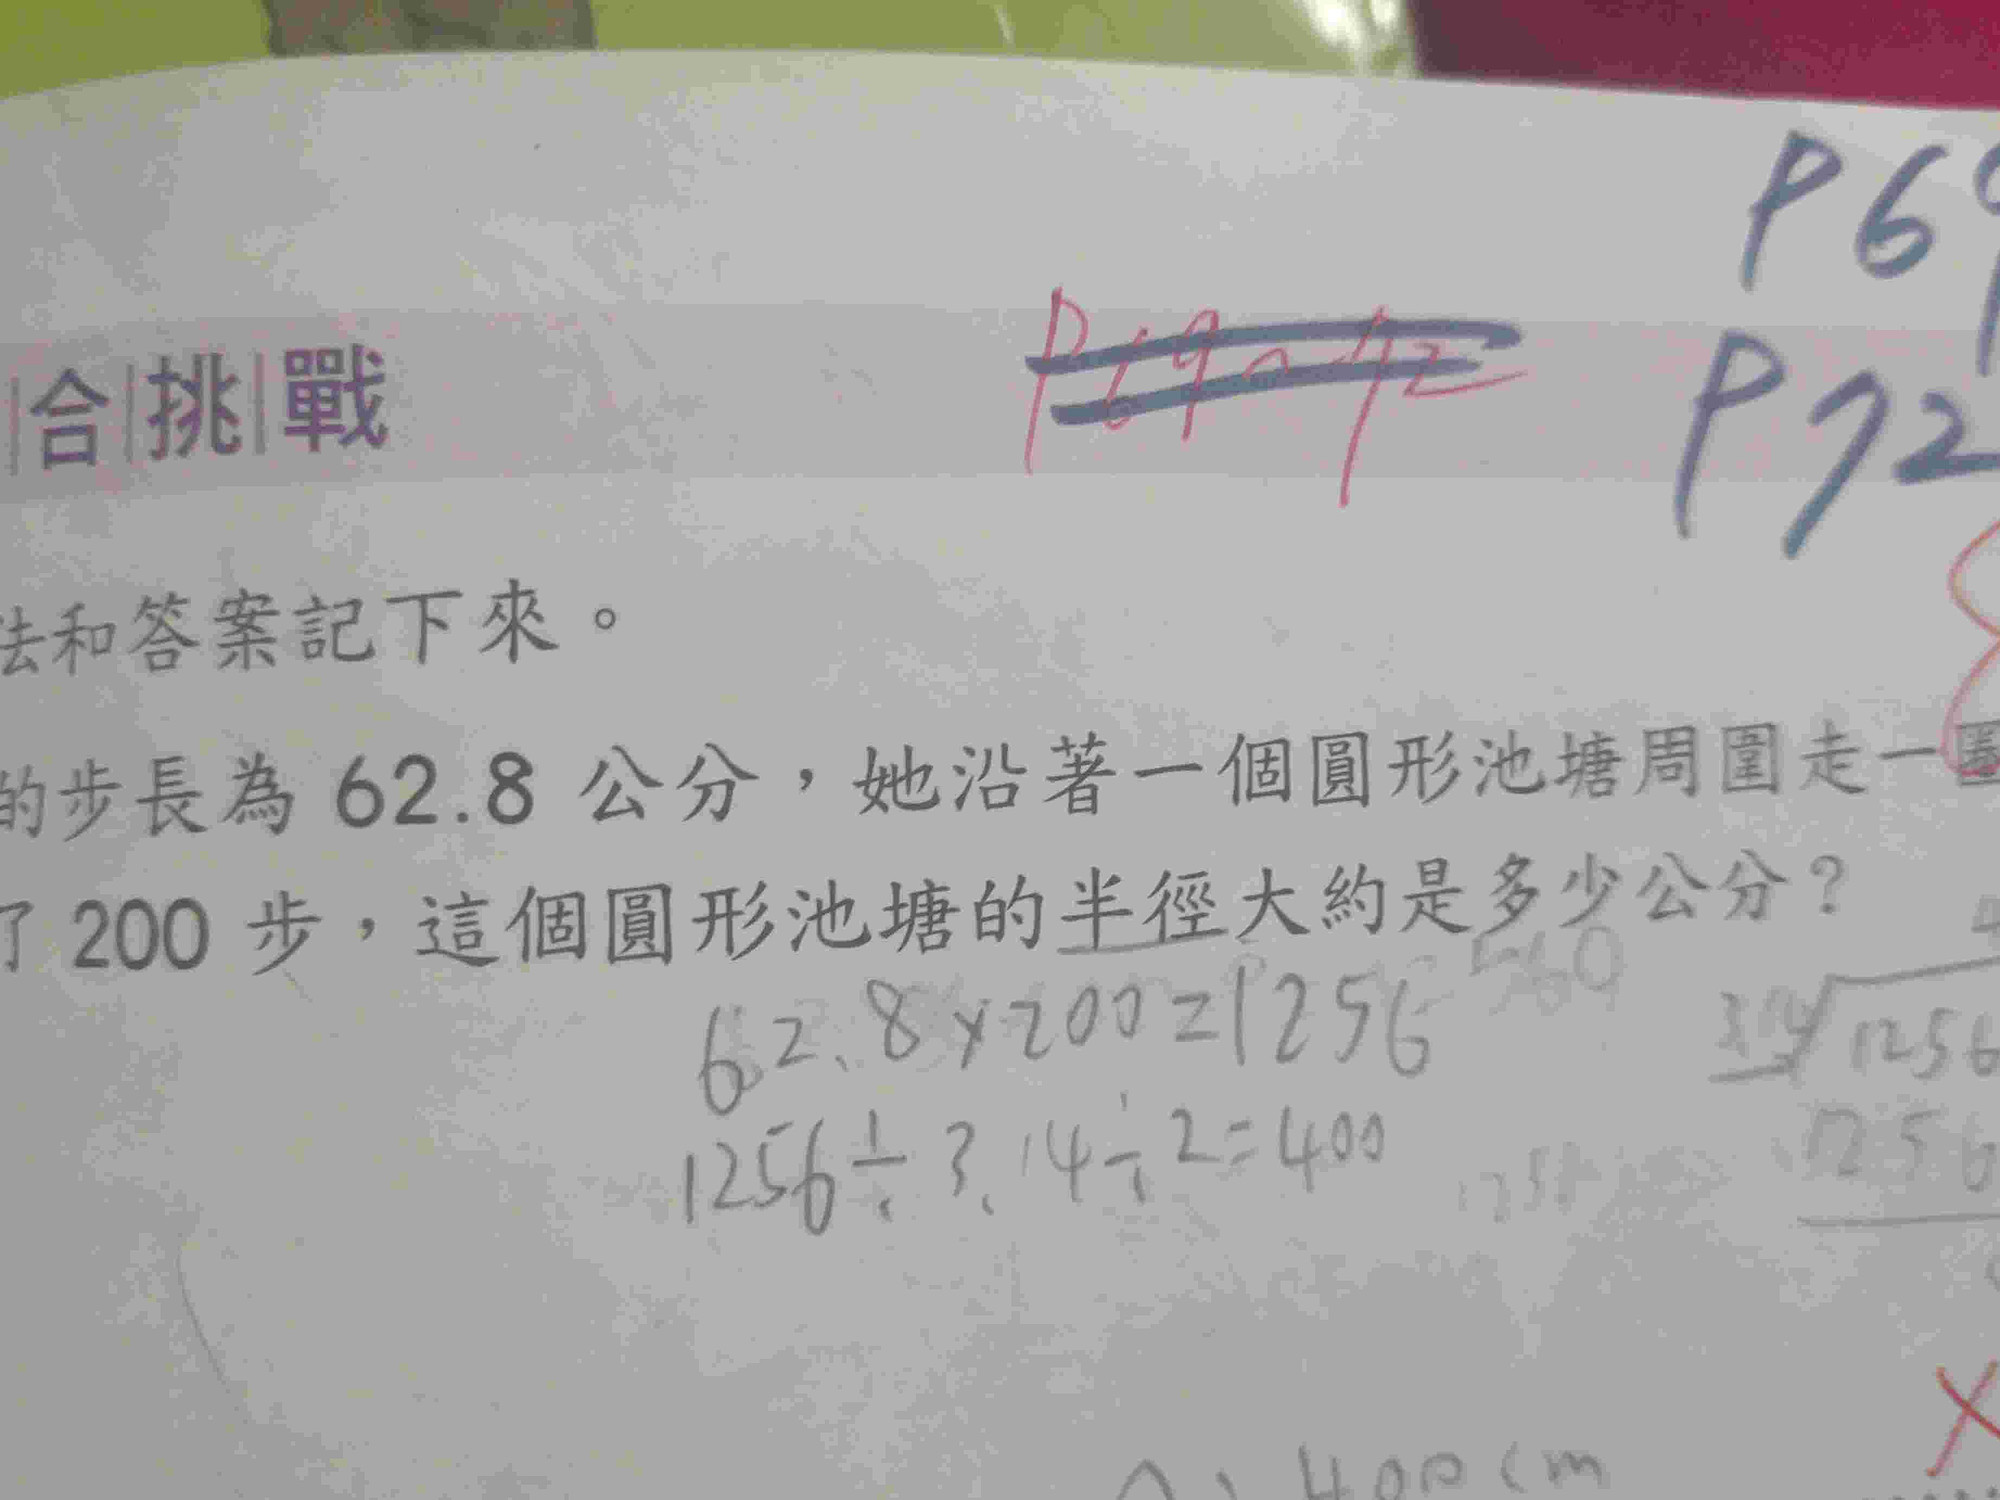 P69
P69~72
P72
合挑戰
法和答案記下來。
的步長為 62.8 公分，她沿著一個圓形池塘周圍走一圈
了 200 步，這個圓形池塘的半徑大約是多少公分？
62.8×200=1256
1256÷3.14÷2=400
3.14 1256
1256
400cm